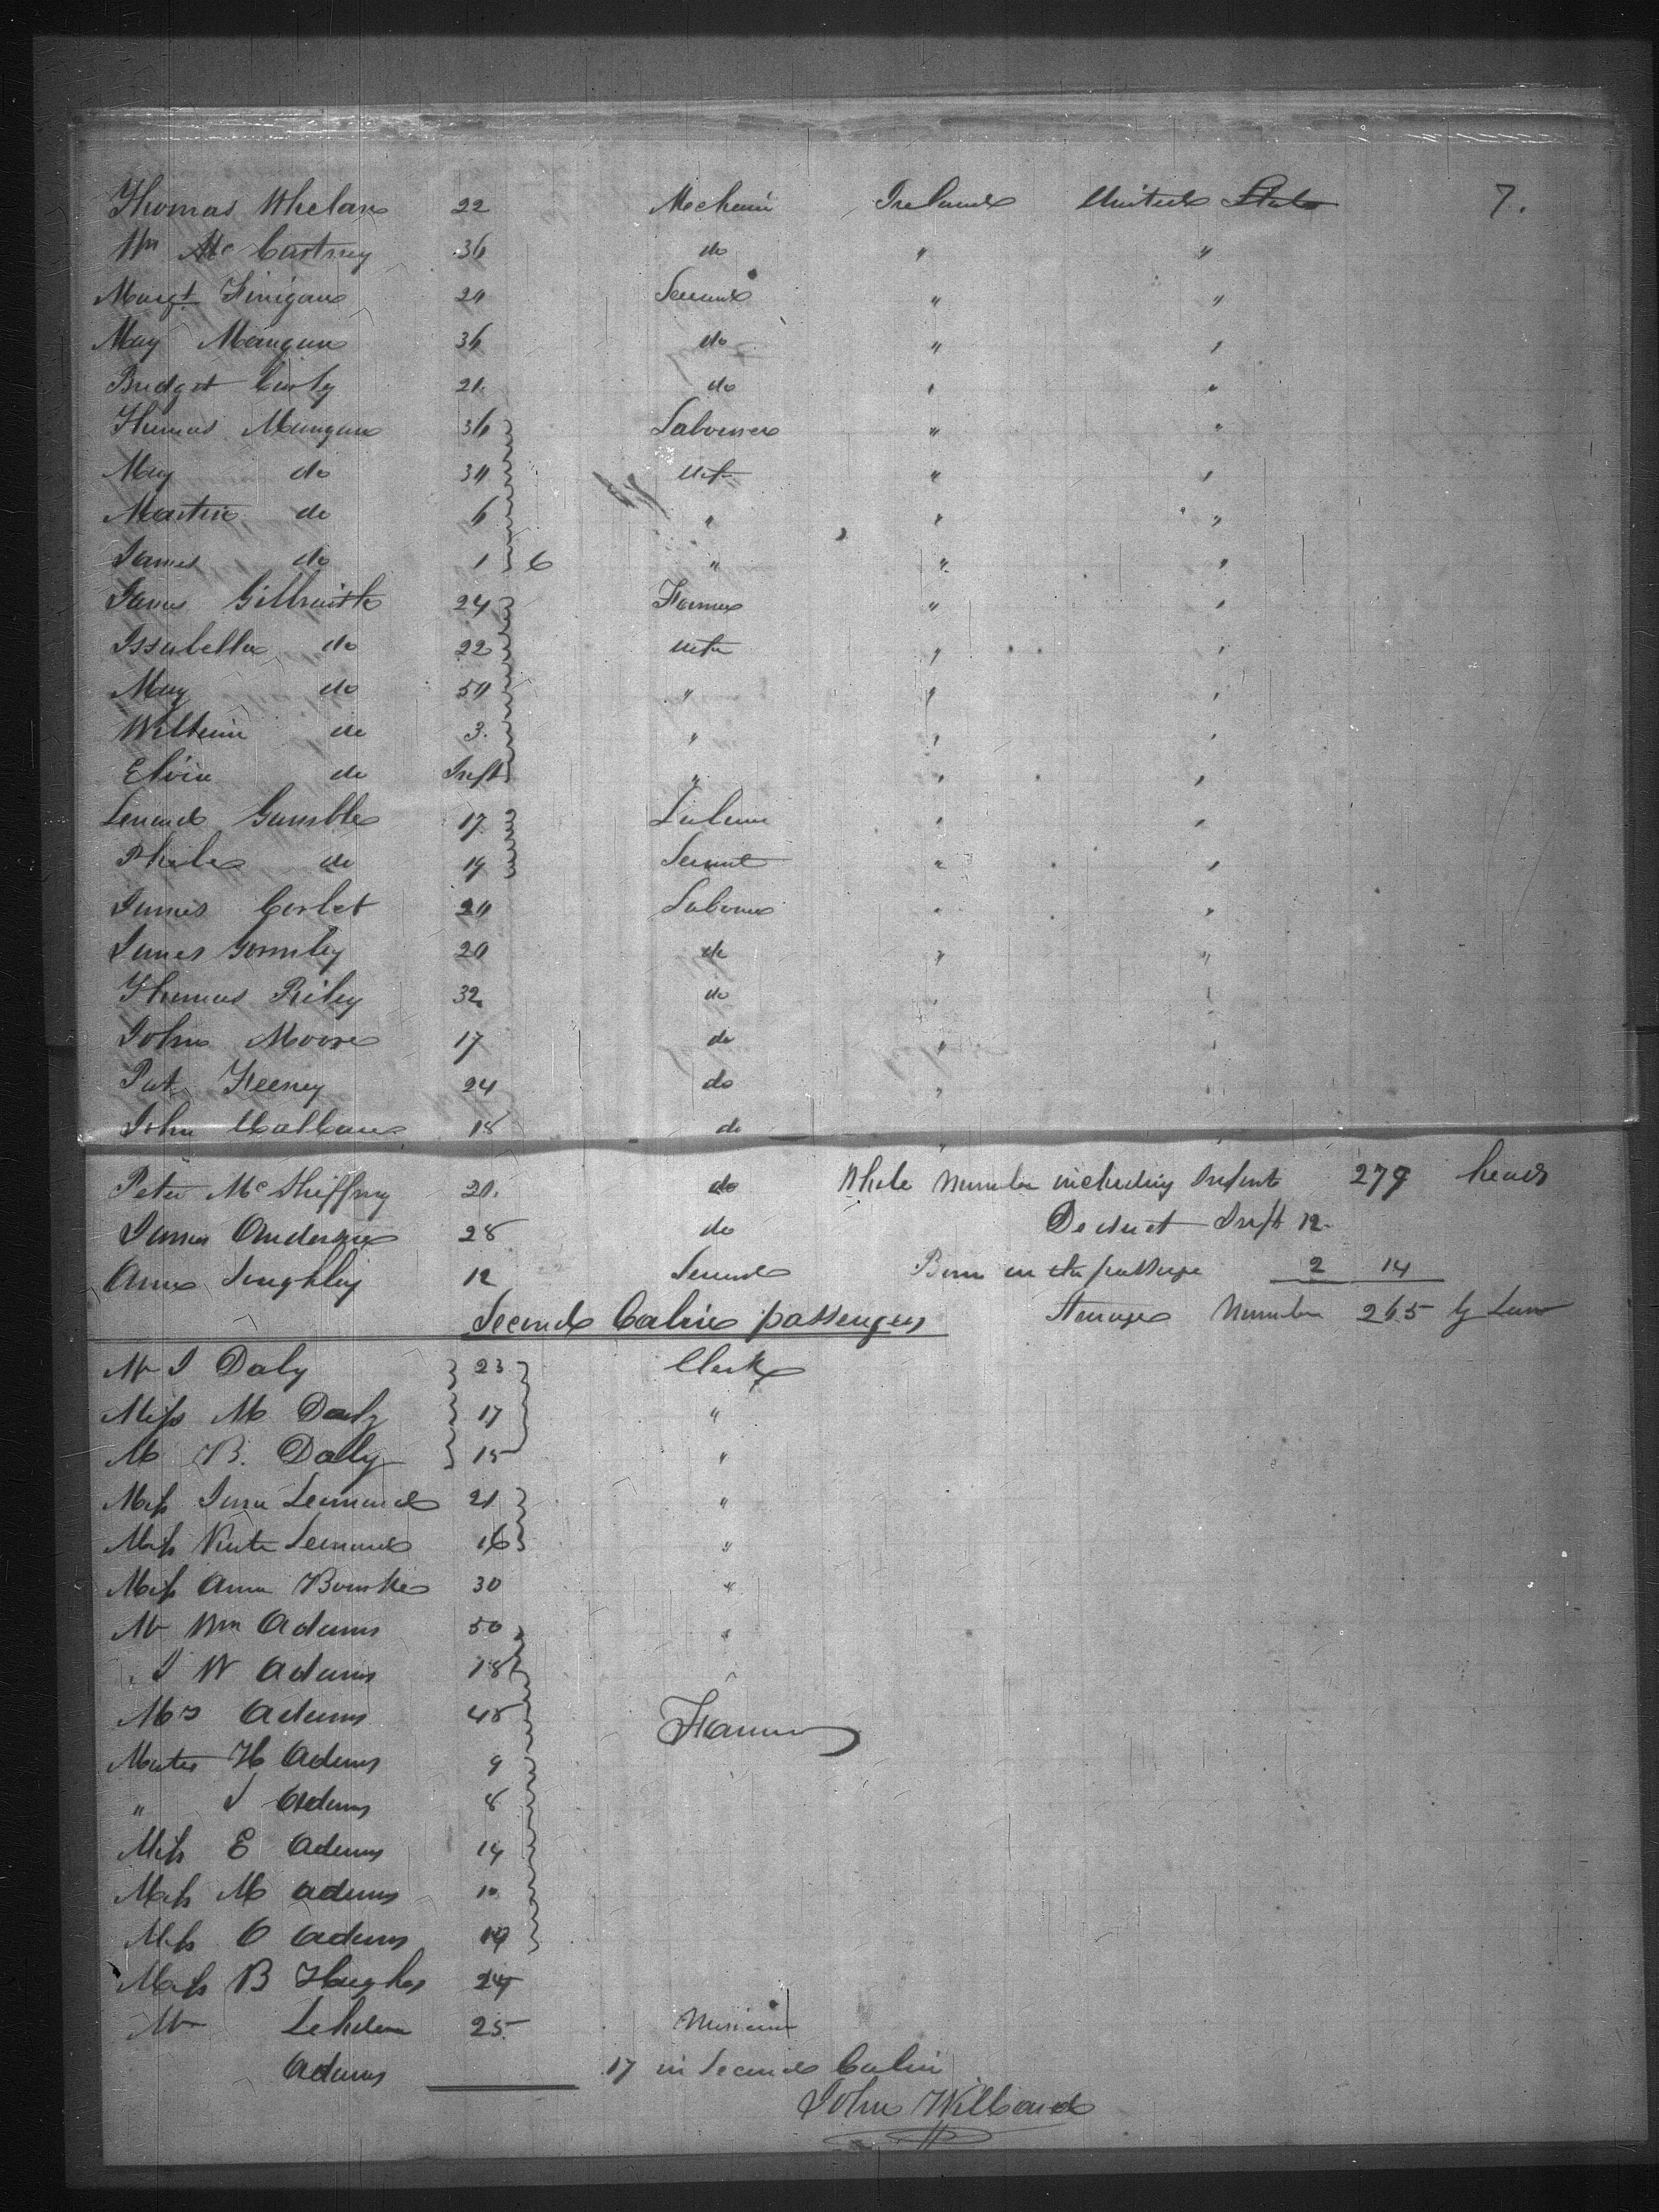 Thomas Whelan 22 Mechanic Ireland United States 7.
Wm McCartney 36 do " "
Margt Finigan 20 Servant " "
May Mangan 36 do " "
Bridget Curly 20 do " "
Thomas Mangan 36 Labourer " "
May do 30 wife " "
Martin do 6 " " "
James do 1 6 " " "
James Gilbraith 24 Farmer " "
Issabella do 22 wife " "
May do 50 " " "
William do 3. " " "
do Inft " " "
Gamble 17 " "
do 19 Servant " "
James Corbet 20 Labourer " "
James Gormley 20 do " "
Thomas Riley 32 do " "
John Moore 17 do " "
Pat Feeney 24 do " "
John 18 do "
Peter 20. do Whole Number including Infant 279 heads
James Anderson 28 do Deduct Inft 12
Ann 12 Servant Born on the passage 2 14
Second Cabin passengers Steerage Number 265 by Law
Mr J Daly 23 Clerk
Miss M Daly 17 "
M B. Daly 15 "
Miss Leonard 21 "
Miss Kate Leonard 16 "
Miss Ann Bourke 30 "
Mr Wm Adams 50 "
J W Adams 18 "
Mrs Adams 45 Farmer
Master H Adams 9
" J Adams 8
Miss E Adams 14
Miss M Adams 10
Miss O Adams 19
Miss B Hughes 24
Mr 25 Musician
Adams 17 in Second Cabin
John Willcard